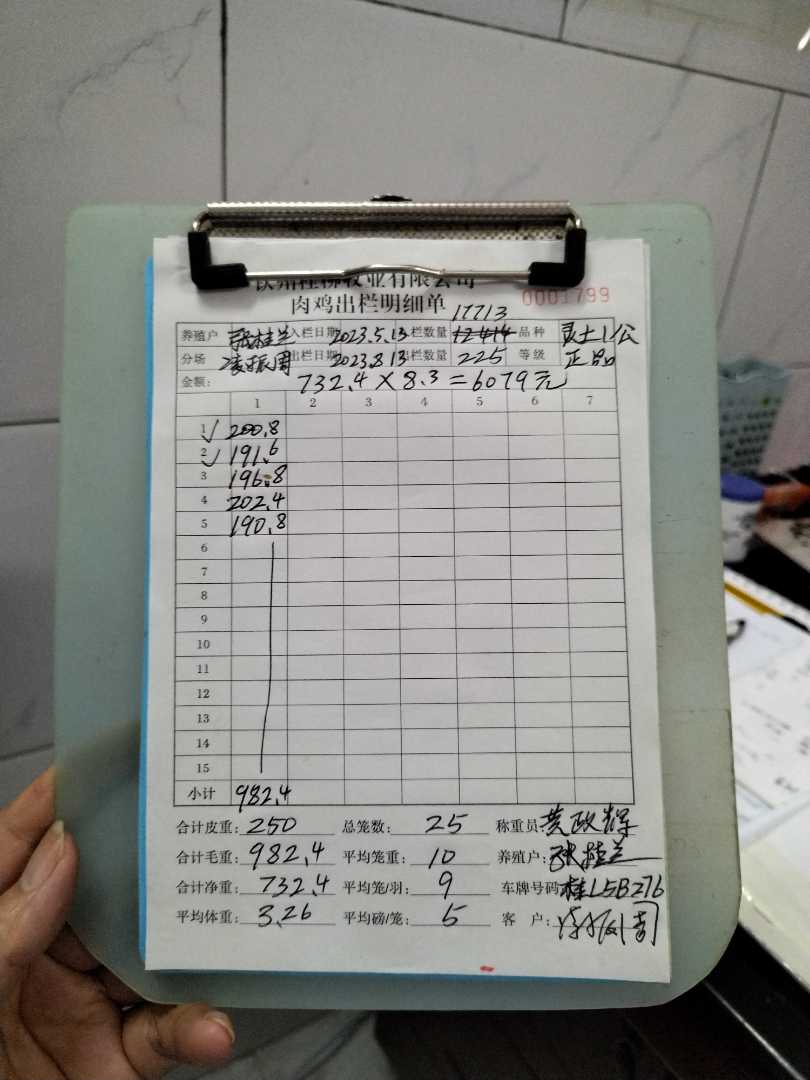 牧业有限公司
肉鸡出栏明细单 0001799
17713
养殖户 张桂兰 入栏日期 2023.5.13 栏数量 12414 品种 灵土1公
分场 凌振周 出栏日期 2023.8.13 出栏数量 225 等级 正品
金额: 732.4×8.3=6079元
1 2 3 4 5 6 7
1 ✓ 200.8
2 ✓ 191.6
3 196.8
4 202.4
5 190.8
6
7
8
9
10
11
12
13
14
15
小计 982.4
合计皮重: 250 总笼数: 25 称重员: 黄政辉
合计毛重: 982.4 平均笼重: 10 养殖户: 张桂兰
合计净重: 732.4 平均笼/羽: 9 车牌号码 桂L5B276
平均体重: 3.26 平均磅/笼: 5 客 户: